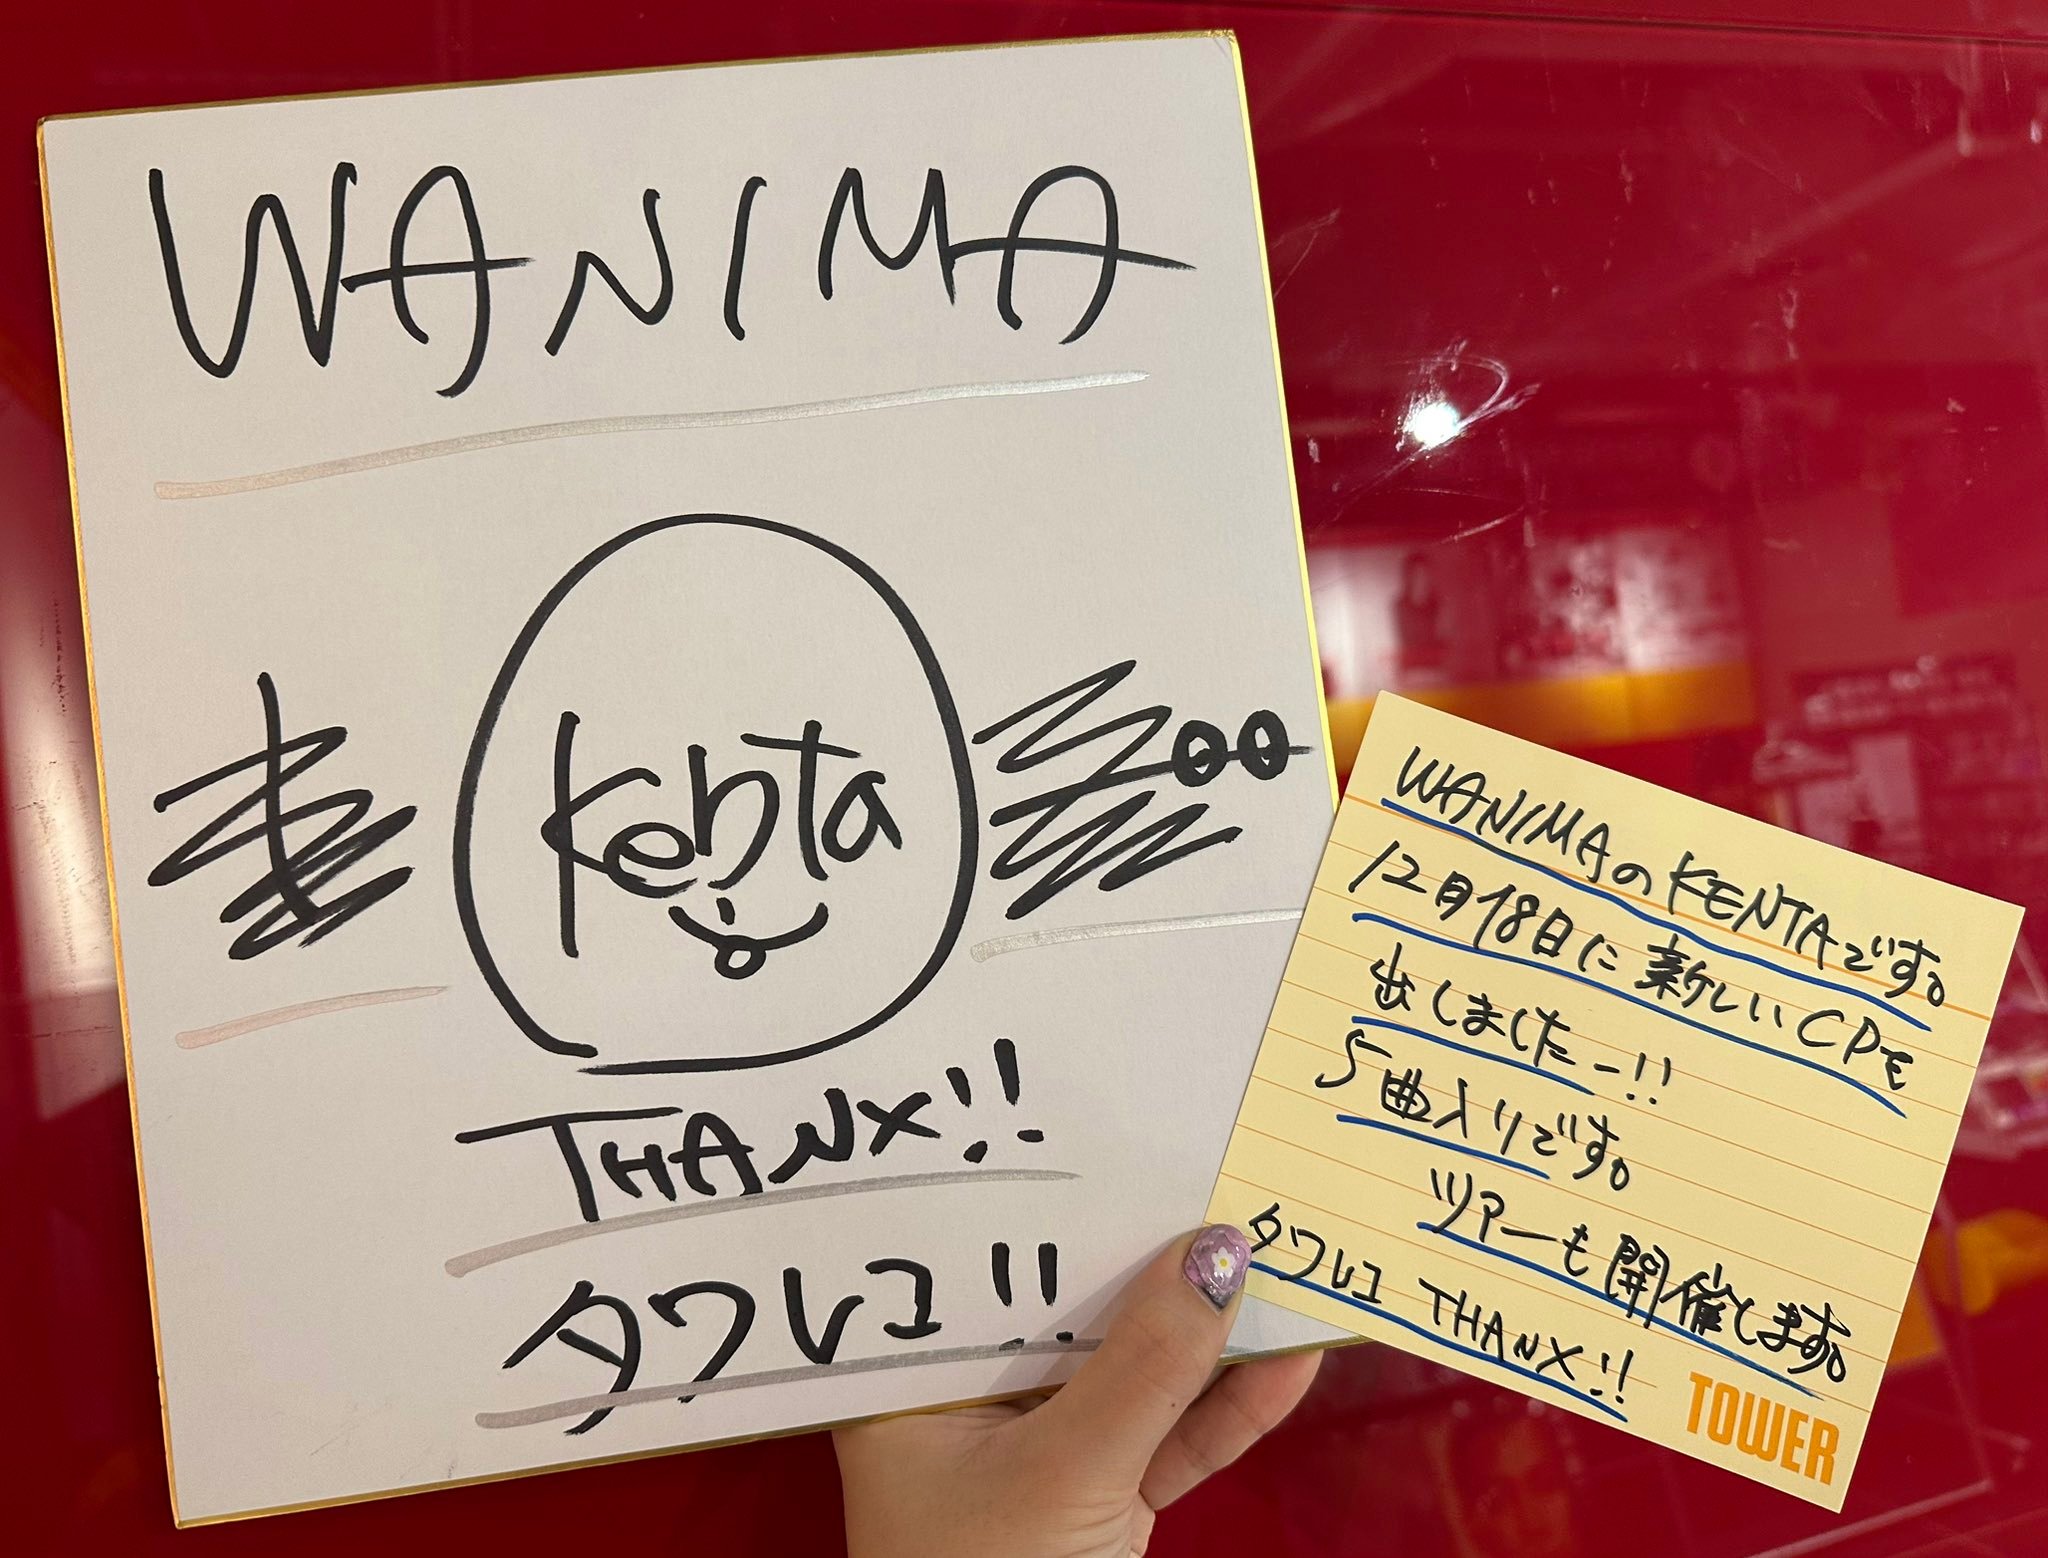 WANIMA
Kenta
THANX!!
タワレコ!!
WANIMAのKENTAです。
12月18日に新しいCDを
出しましたー!!
5曲入りです。
ツアーも開催します。
タワレコ THANX!!
TOWER